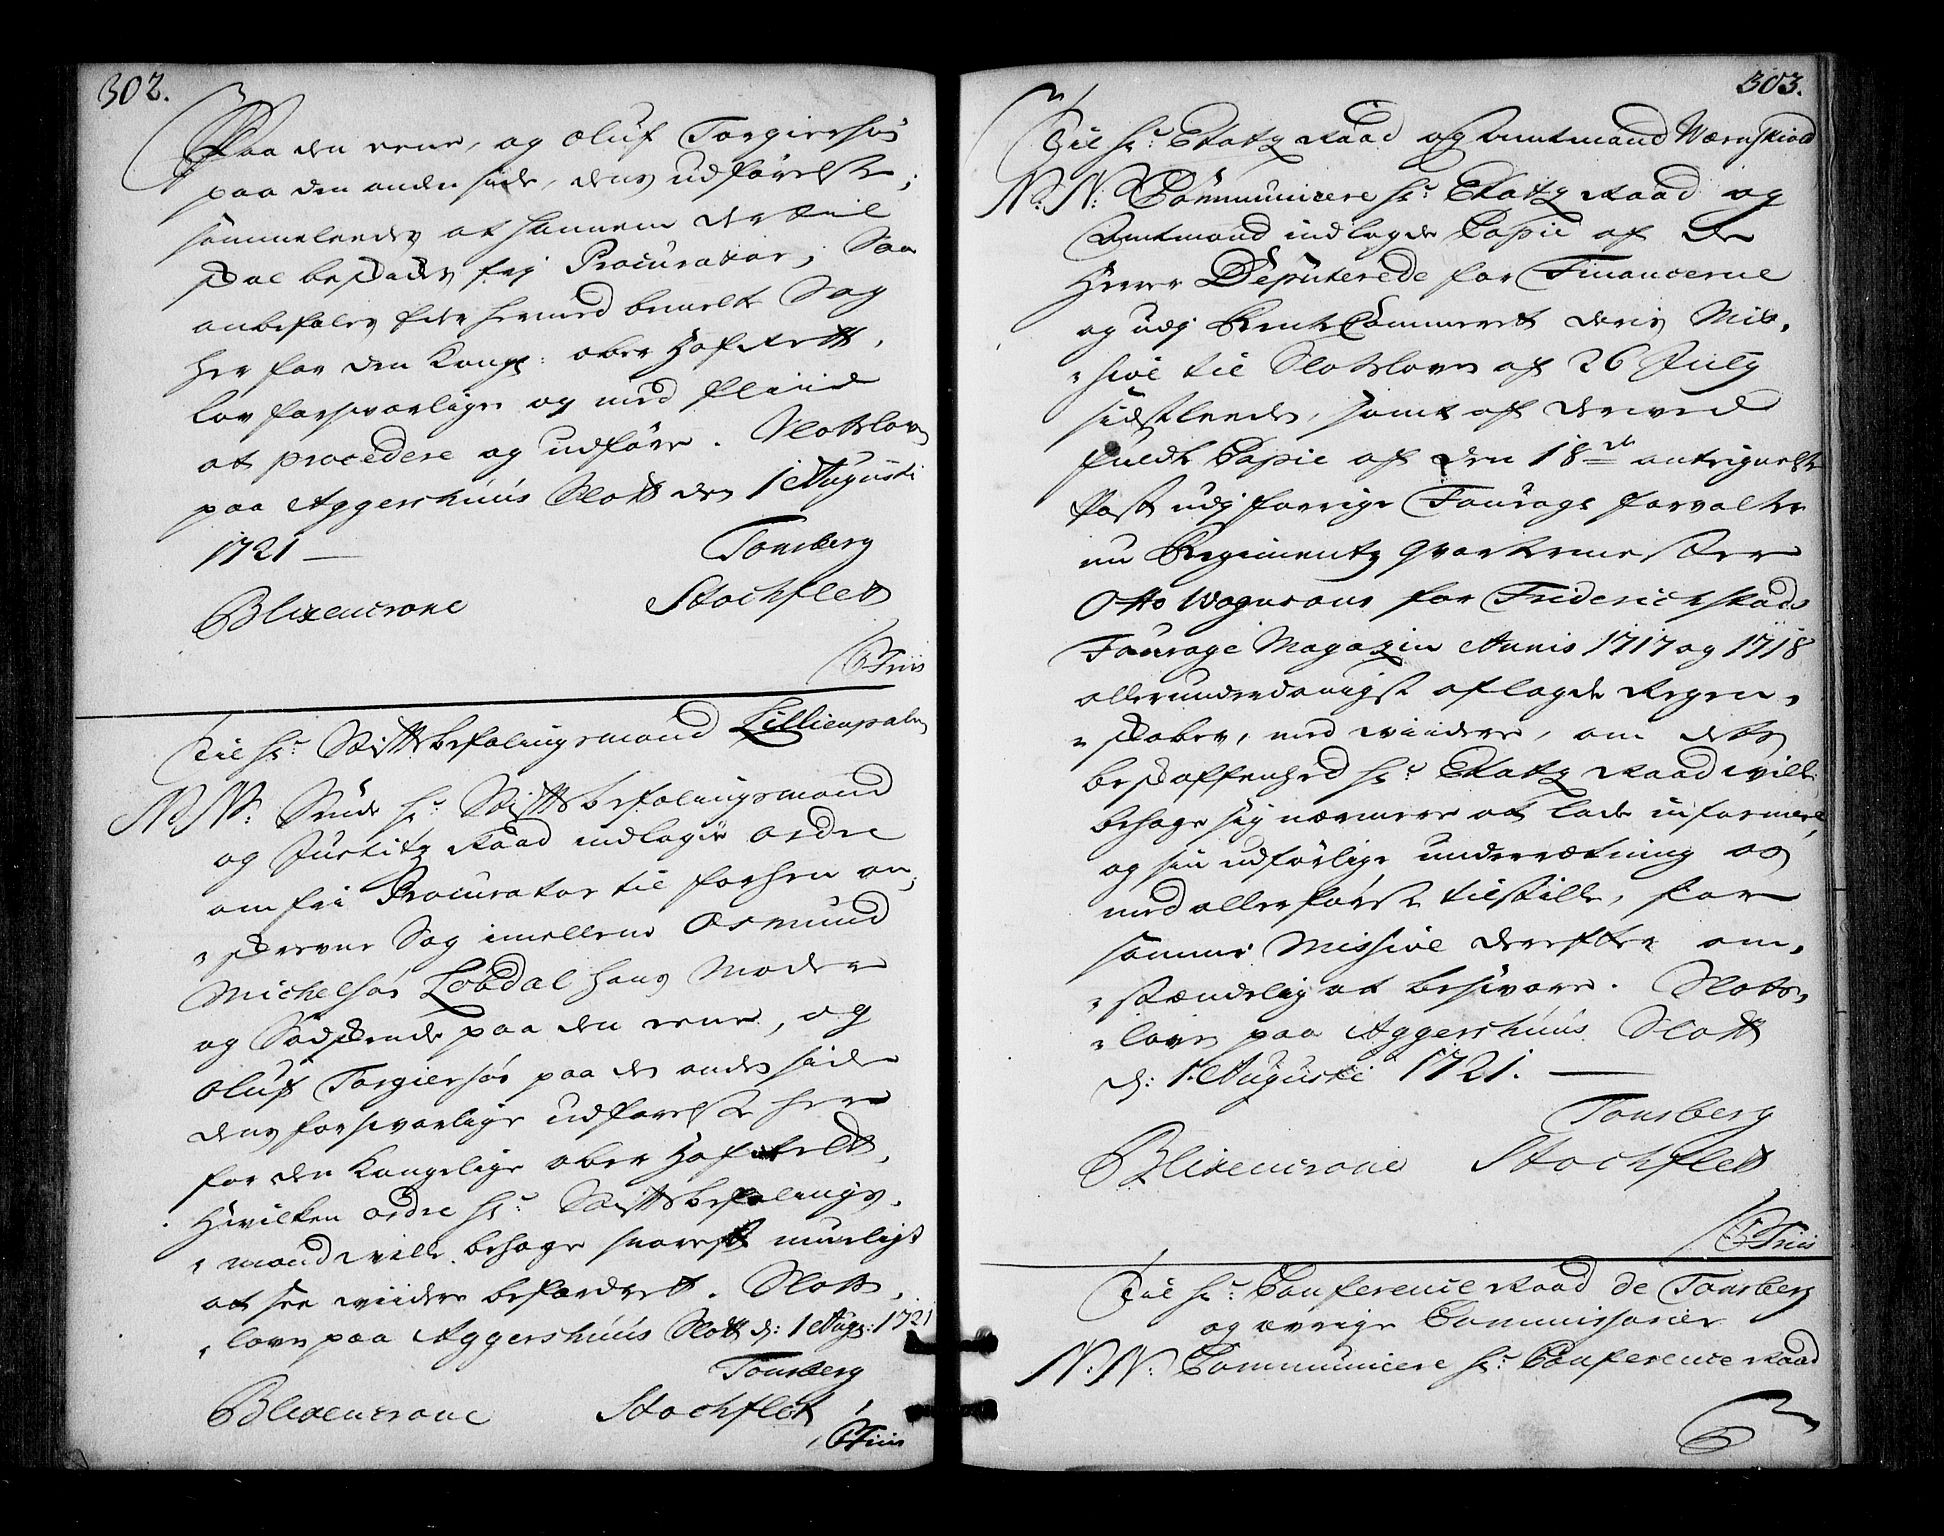 302.
Paa den eene, og Oluf Torgiersøn
paa den anden side, dens udførelse;
sammeleedes at hannem dertil
skal beskikkes frj Procurator; Saa
anbefales eder hermed bemelte Sag
her for den Kongl: ober Hof Rett,
lov forsvarligen og med fliid
at procedere og udføre. Slotsloven
paa Aggershuus Slott den 1 Augusti
1721 —
Tonsberg
Blixencrone Stochflett
Friis
Til Hr: Stiftsbefalingsmand Lillienpalm
N: N: Sende Hr: Stiftsbefalingsmand
og Justitz Raad indlagde ordre
om fri Procurator til forhen an-
skrevne Sag imellem Osmund
Michelsøn Løbdal hans Moder
og Sødskende paa den eene, og
Oluf Torgiersøn paa den anden side
dens forsvarlige udførelse her
for den Kongelige ober Hof Rett,
Hvilken ordre Hr: Stiftsbefalings-
mand wille behage snarest muligst
at see wiidere befordret. Slots-
loven paa Aggershuus Slott d: 1 Aug: 1721
Tonsberg
Blixencrone Stochflet
Friis
303.
Til Hr: Etatz Raad og Amtmand Wærnskiold
N: N: Communicere Hr: Etatz Raad og
Amtmand indlagde Copie af De
Herrer Deputerede for Financerne
og udj Rente Cammeret deris Mis-
sive til Slotsloven af 26 July
sidstleeden, samt af derved
fulde Copie af den 18de antegnelse
Post udj forrige Fourage forvalter
nu Regimentz qvarteermester
Otto Wognsons for Friderichstads
Fourage Magazin Annis 1717 og 1718
allerunderdanigst aflagde Regen-
skaber, med wiidere, om dets
beskaffenhed Hr: Etatz Raad wille
behage sig nærmere at lade informere,
og sin udførlige underrætning os
med allerførste tilstille, for
samme Missive derefter om-
stændelig at besvare. Slots-
loven paa Aggershuus Slott
d: 1. Augusti 1721. —
Tonsberg
Blixencrone Stochflett
Friis
Til Hr: Conference Raad de Tonsberg
og øvrige Commissarier
N: N: Communicere Hr: Conference Raad